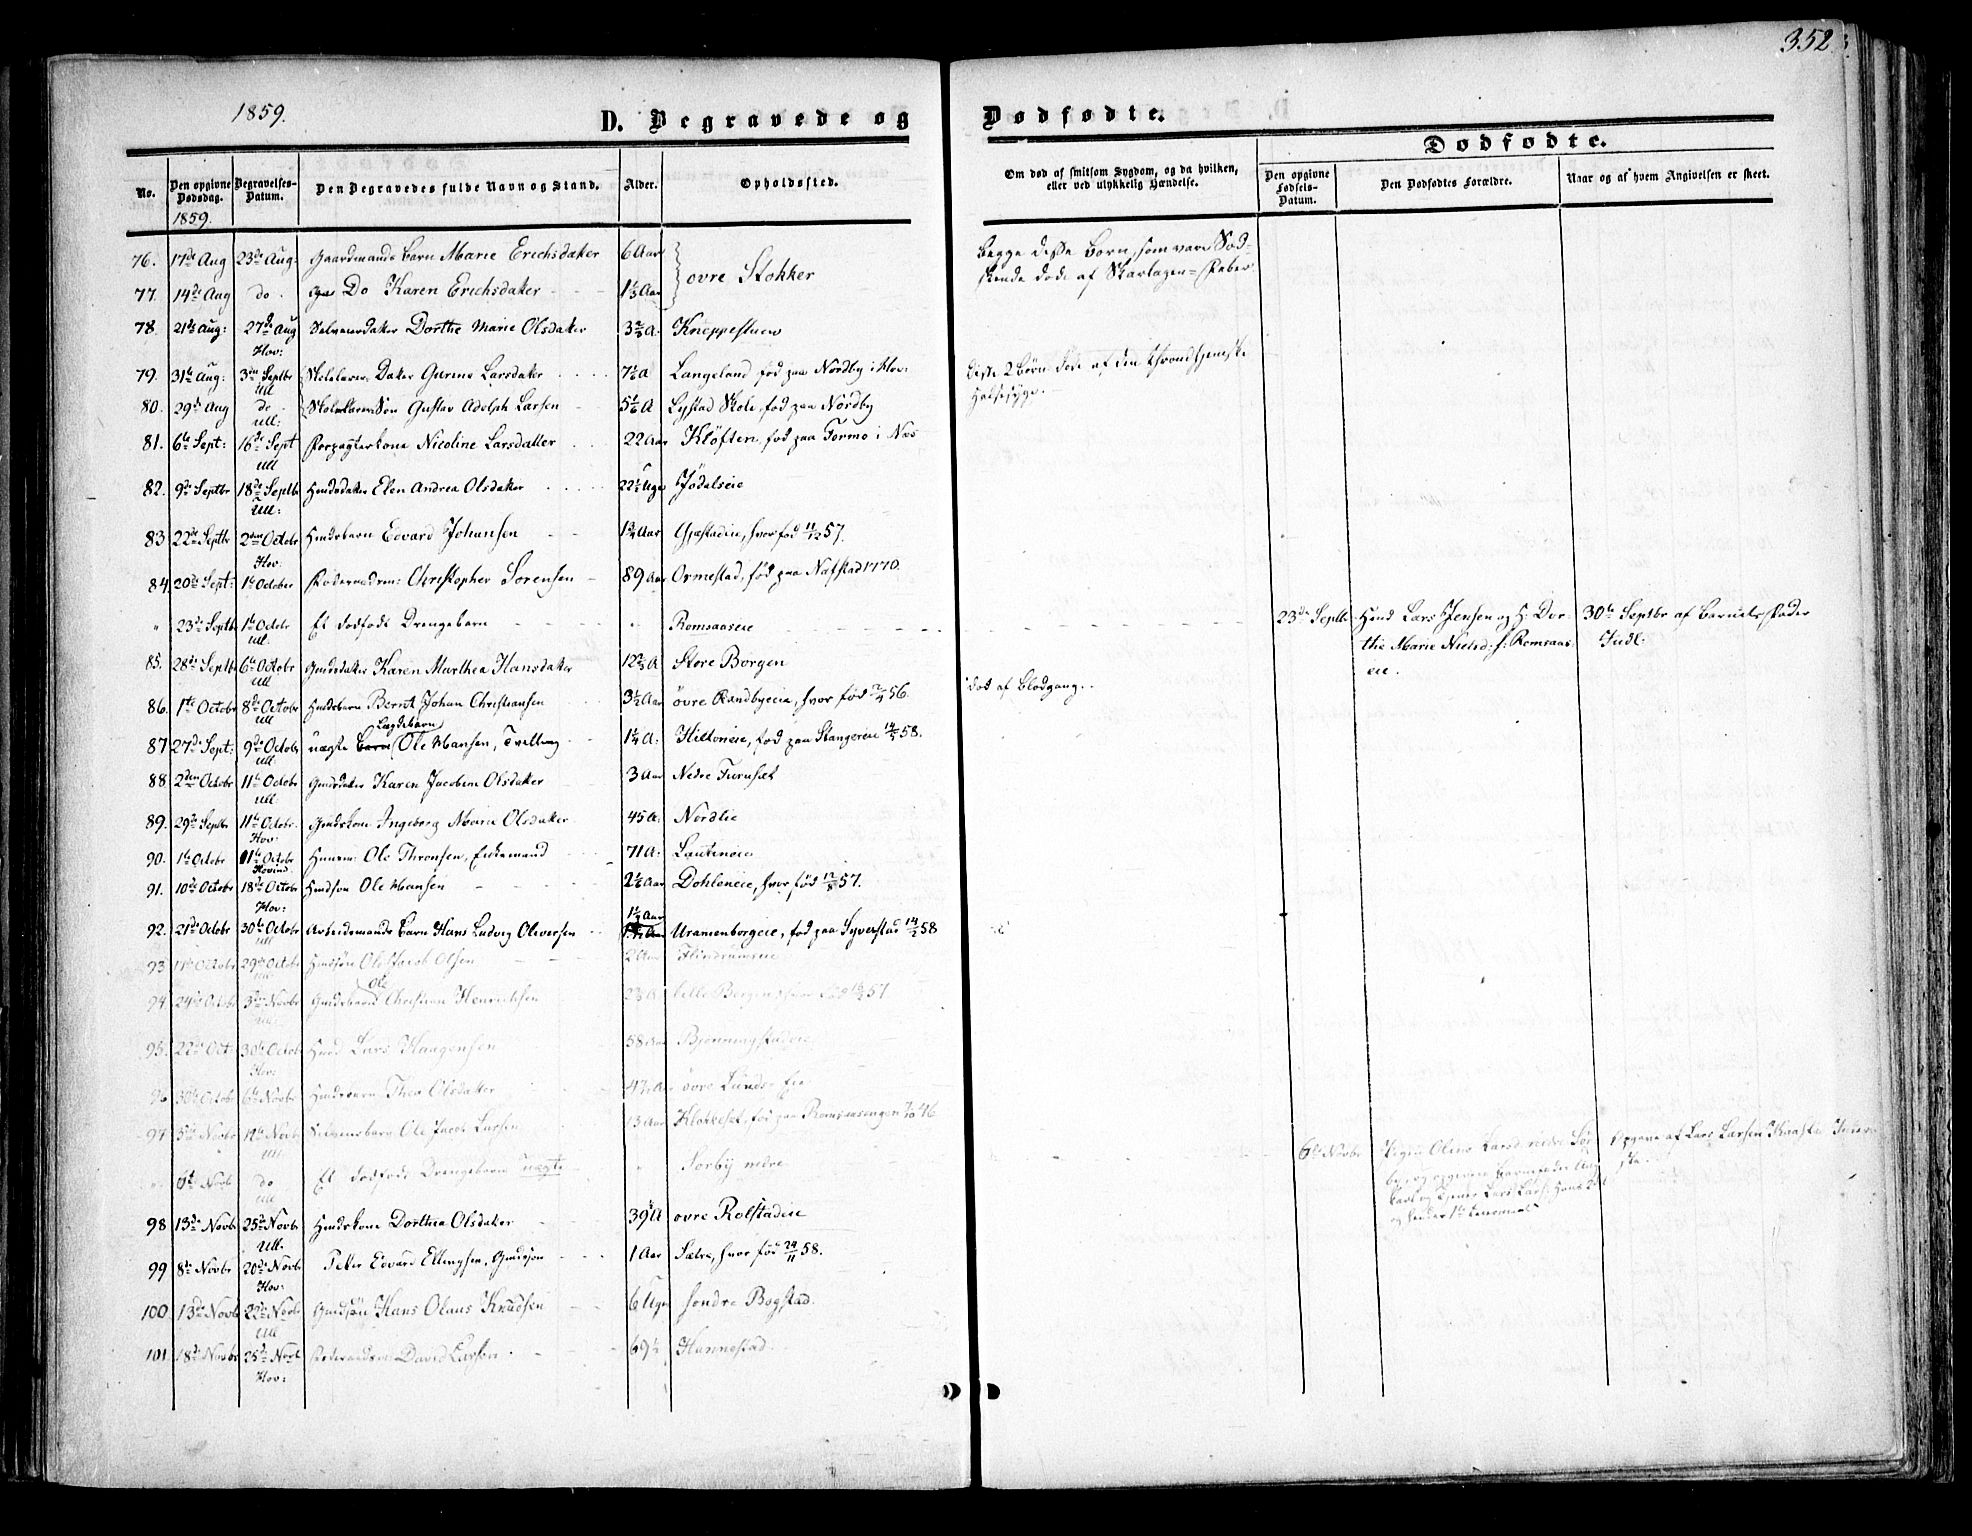 352
1859.
D. Begravede og Dødfødte.
Dødfødte.
No.
Den opgivne Dødsdag.
Begravelses-Datum.
Den Begravedes fulde Navn og Stand.
Alder.
Opholdssted.
Om død af smitsom Sygdom, og da hvilken, eller ved ulykkelig Hændelse.
Den opgivne Fødsels-Datum.
Den Dødfødtes Forældre.
Naar og af hvem Angivelsen er skeet.
1859.
76. 17de Aug 23de Aug: Gaardmands Barn Marie Erichsdatter 6 Aar
77. 14de Aug do. Do Karen Erichsdatter 1⅓ Aar øvre Stokker
Begge disse Børn, som vare Sød-
skende døde af Skarlagen-Feber
78. 21de Aug: 27de Aug Hov: Selveierdatter Dorthe Marie Olsdatter 3⅔ A. Kneppestuen
79. 31te Aug: 3die Septbr Ull Skolelærer Datter Gurine Larsdatter 7½ A Langeland født paa Nordby i Hov:
Disse 2 Børn døde af den throndhjemske
Halssyge.
80. 29de Aug do Ull: Skolelærer Søn Gustav Adolph Larsen 5⅙ A Lystad Skole, fød paa Nordby
81. 6te Sept: 16de Sept Ull Forpagterkone Nicoline Larsdatter 22 Aar Kløften, fød paa Formo i Næs
82. 9de Septbr 18de Septbr Ull: Huusdatter Elen Andrea Olsdatter 22½ Uge Jødalseie
83 22de Septbr 2den Octobr Hov: Huusbarn Edvard Johansen 1¾ Aar Gjestadeie, hvor fød 11/12 57.
84. 20de Sept: 1te October Føderaadsm: Christopher Sørensen 89 Aar Ormestad, fød paa Nafstad 1770.
" 23de Septbr 1te Octobr Ull. Et dødfødt Drengebarn Romsaaseie
23de Septbr Huusm Lars Jensen og H. Dor-
thie Marie Nielsd: f: Romsaas-
eie.
30te Septbr af Barnets Fader
Indl:
85. 28de Septbr 6te Octobr Ull Gaardsdatter Karen Marthea Hansdatter 12⅔ A Store Borgen
86. 1te October 8de Octobr Ull Huusbarn Bernt Johan Christiansen 3½ Aar øvre Randbyeie, hvor fød 2/4 56. død af Blodgang.
87 27de Sept: 9de Octobr Ull. uægte Lægdebarn Ole Hansen, Tvilling 1¼ A: Hiltoneie, fød paa Stangereie 14/5 58.
88. 2den Octobr 11te Octobr Ull. Gaardsdatter Karen Jacobine Olsdatter 3 Aar Nedre Furuset
89. 29de Septbr 11te Octobr. Hov: Gaardskone Ingeborg Marie Olsdatter 45 A: Nordlie
90. 1te Octobr 11te October Hovind. Huusm: Ole Thronsen, Enkemand 71 A: Lauteneie
91. 10de Octobr 18de Octobr Hov: Huusson Ole Hansen 2⅙ Aar Dohleneie, hvor fød 12/8 57.
92. 21de Octobr 30te Octobr Ull Arbeidsmands Barn Hans Ludvig Oliversen 1½ Aar Uranienborgeie, fød paa Syverstad 14/2 58
93 11te Octobr 29de Octobr Huussøn Ole Jacob Olsen 2 Aar Flindrumseie
94. 24de Octobr 3die Novbr Ull: Gaardsbarn Ole Christian Henrichsen 2⅔ A lille Borgen, hvor fød 57
95. 22de Oct: 30te Octob Hov: Huusm Lars Haagensen 58 Aar Bjønningstadeie
96 30te Octobr 6te Novbr Huusbarn Thea Olsdatter øvre Lunds Eie
97 5te Novbr 12te Novbr Ull Selveierbarn Ole Jacob Larsen 13 Aar Klokkeset, fød paa Romsaasengen 7/10 46
" 6te Novbr do Ull Et dødfødt Drengebarn uægte Norby nedre
6te Novbr Pige Oline Larsd. nedre Nor-
by, og opgiven Barnefader Ung
karl og Tjener Lars Lars:
Opgave af Lars Larsen
98 13de Novbr 25de Novbr Ull. Huuskone Dorthea Olsdatter 39 A øvre Rolstadeie
99 8de Novbr 20de Novbr Hov: Peter Edvard Ellingsen, Gaardsøn 1 Aar Sætre, hvor fød 24/11 58.
100. 13de Novbr 22de Novbr Ull Gaardsøn Hans Olaus Knudsen 6 Uge søndre Bogstad.
101 18de Novbr 25de Novbr Hov: Føderaadsm: David Larsen 69½ Hannestad.